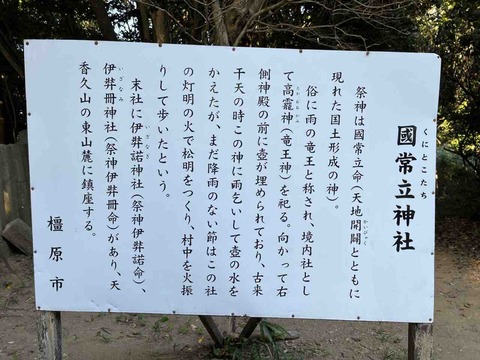 くにとこたち
國常立神社
祭神は國常立命(天地開闢とともに
かいびゃく
現れた国土形成の神)。
俗に雨の竜王と称され、境内社とし
て高龗神(竜王神)を祀る。向かって右
たかおかみ
側神殿の前に壺が埋められており、古来
干天の時この神に雨乞いして壺の水を
かえたが、まだ降雨のない節はこの社
の灯明の火で松明をつくり、村中を火振
りして歩いたという。
末社に伊弉諾神社(祭神伊弉諾命)、
いざなぎ
伊弉冊神社(祭神伊弉冊命)があり、天
いざなみ
香久山の東山麓に鎮座する。
橿原市